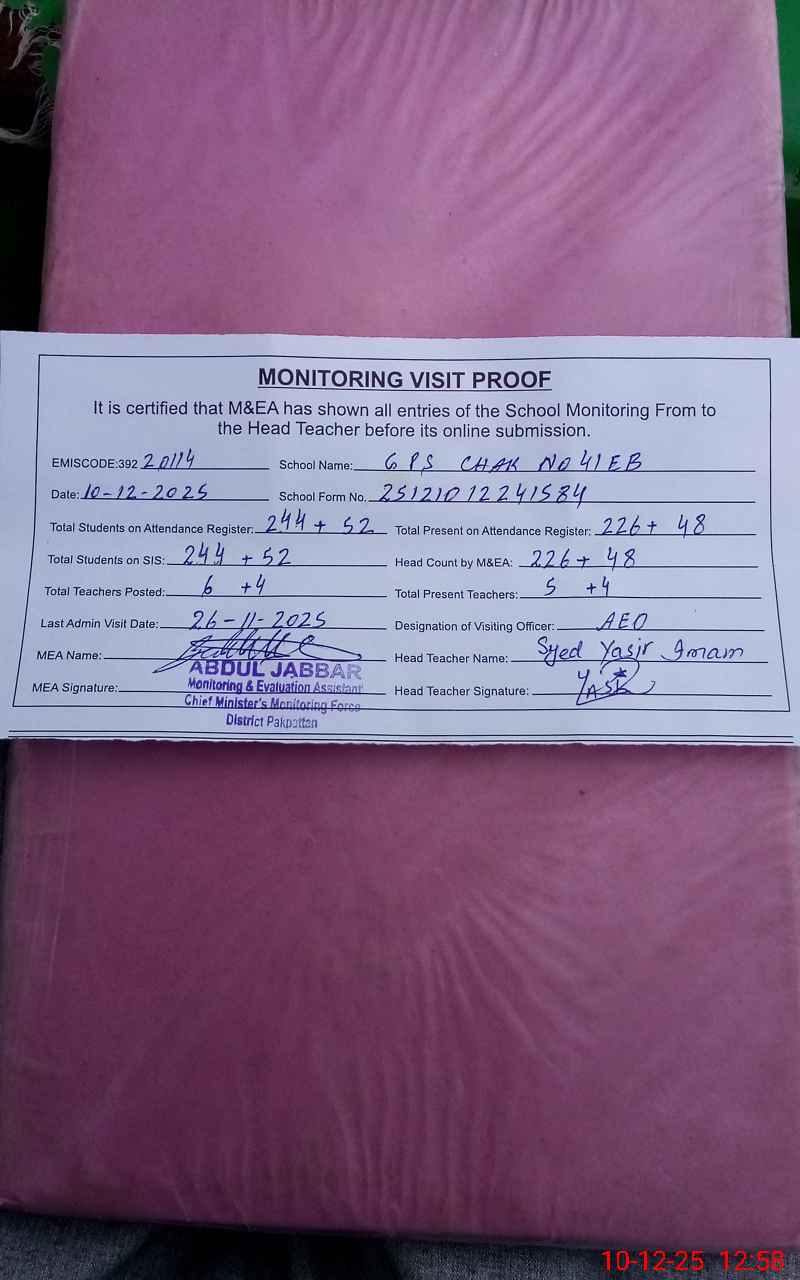 MONITORING VISIT PROOF
It is certified that M&EA has shown all entries of the School Monitoring From to
the Head Teacher before its online submission.
EMISCODE:392 20114 School Name: GPS CHAK NO 41 EB
Date: 10-12-2025 School Form No. 25121012241584
Total Students on Attendance Register: 244 + 52 Total Present on Attendance Register: 226 + 48
Total Students on SIS: 244 + 52 Head Count by M&EA: 226 + 48
Total Teachers Posted: 6 +4 Total Present Teachers: 5 +4
Last Admin Visit Date: 26-11-2025 Designation of Visiting Officer: AEO
MEA Name: Head Teacher Name: Syed Yasir Imam
ABDUL JABBAR
MEA Signature: Monitoring & Evaluation Assistant Head Teacher Signature:
Chief Minister's Monitoring Force
District Pakpattan
10-12-25 12:58